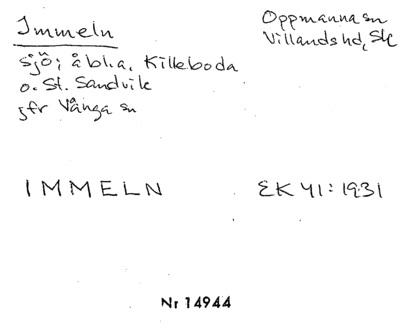 Immeln
Oppmanna sn
Villands hd, Sk
sjö; å bl.a. Killeboda
o. St. Sandvik
jfr Vånga sn
IMMELN
EK 41:1931
Nr 14944